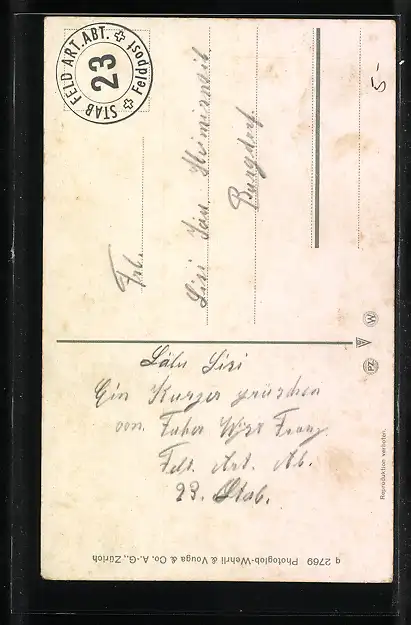 STAB FELD ART. ABT. Feldpost
23
5-
Frl.
Lisi
Burgdorf.
Lisi
Ein Kurzer grüschen
von Franz
Feld. Art. Ab.
23. Stab.
W
PZ
Reproduktion verboten.
q 2769 Photoglob-Wehrli & Vouga & Co. A.-G., Zürich